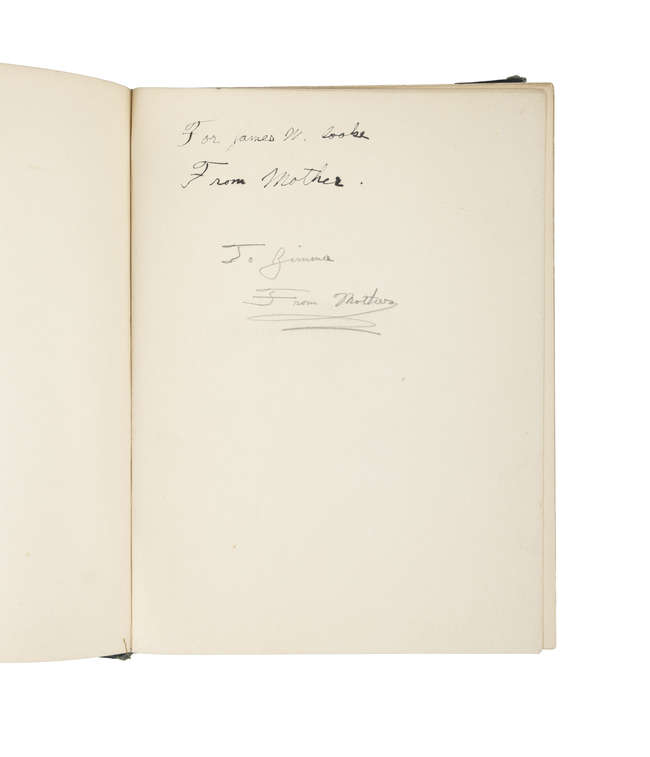 For James M. Cooke
From Mother.
To Jimmie
From Mother